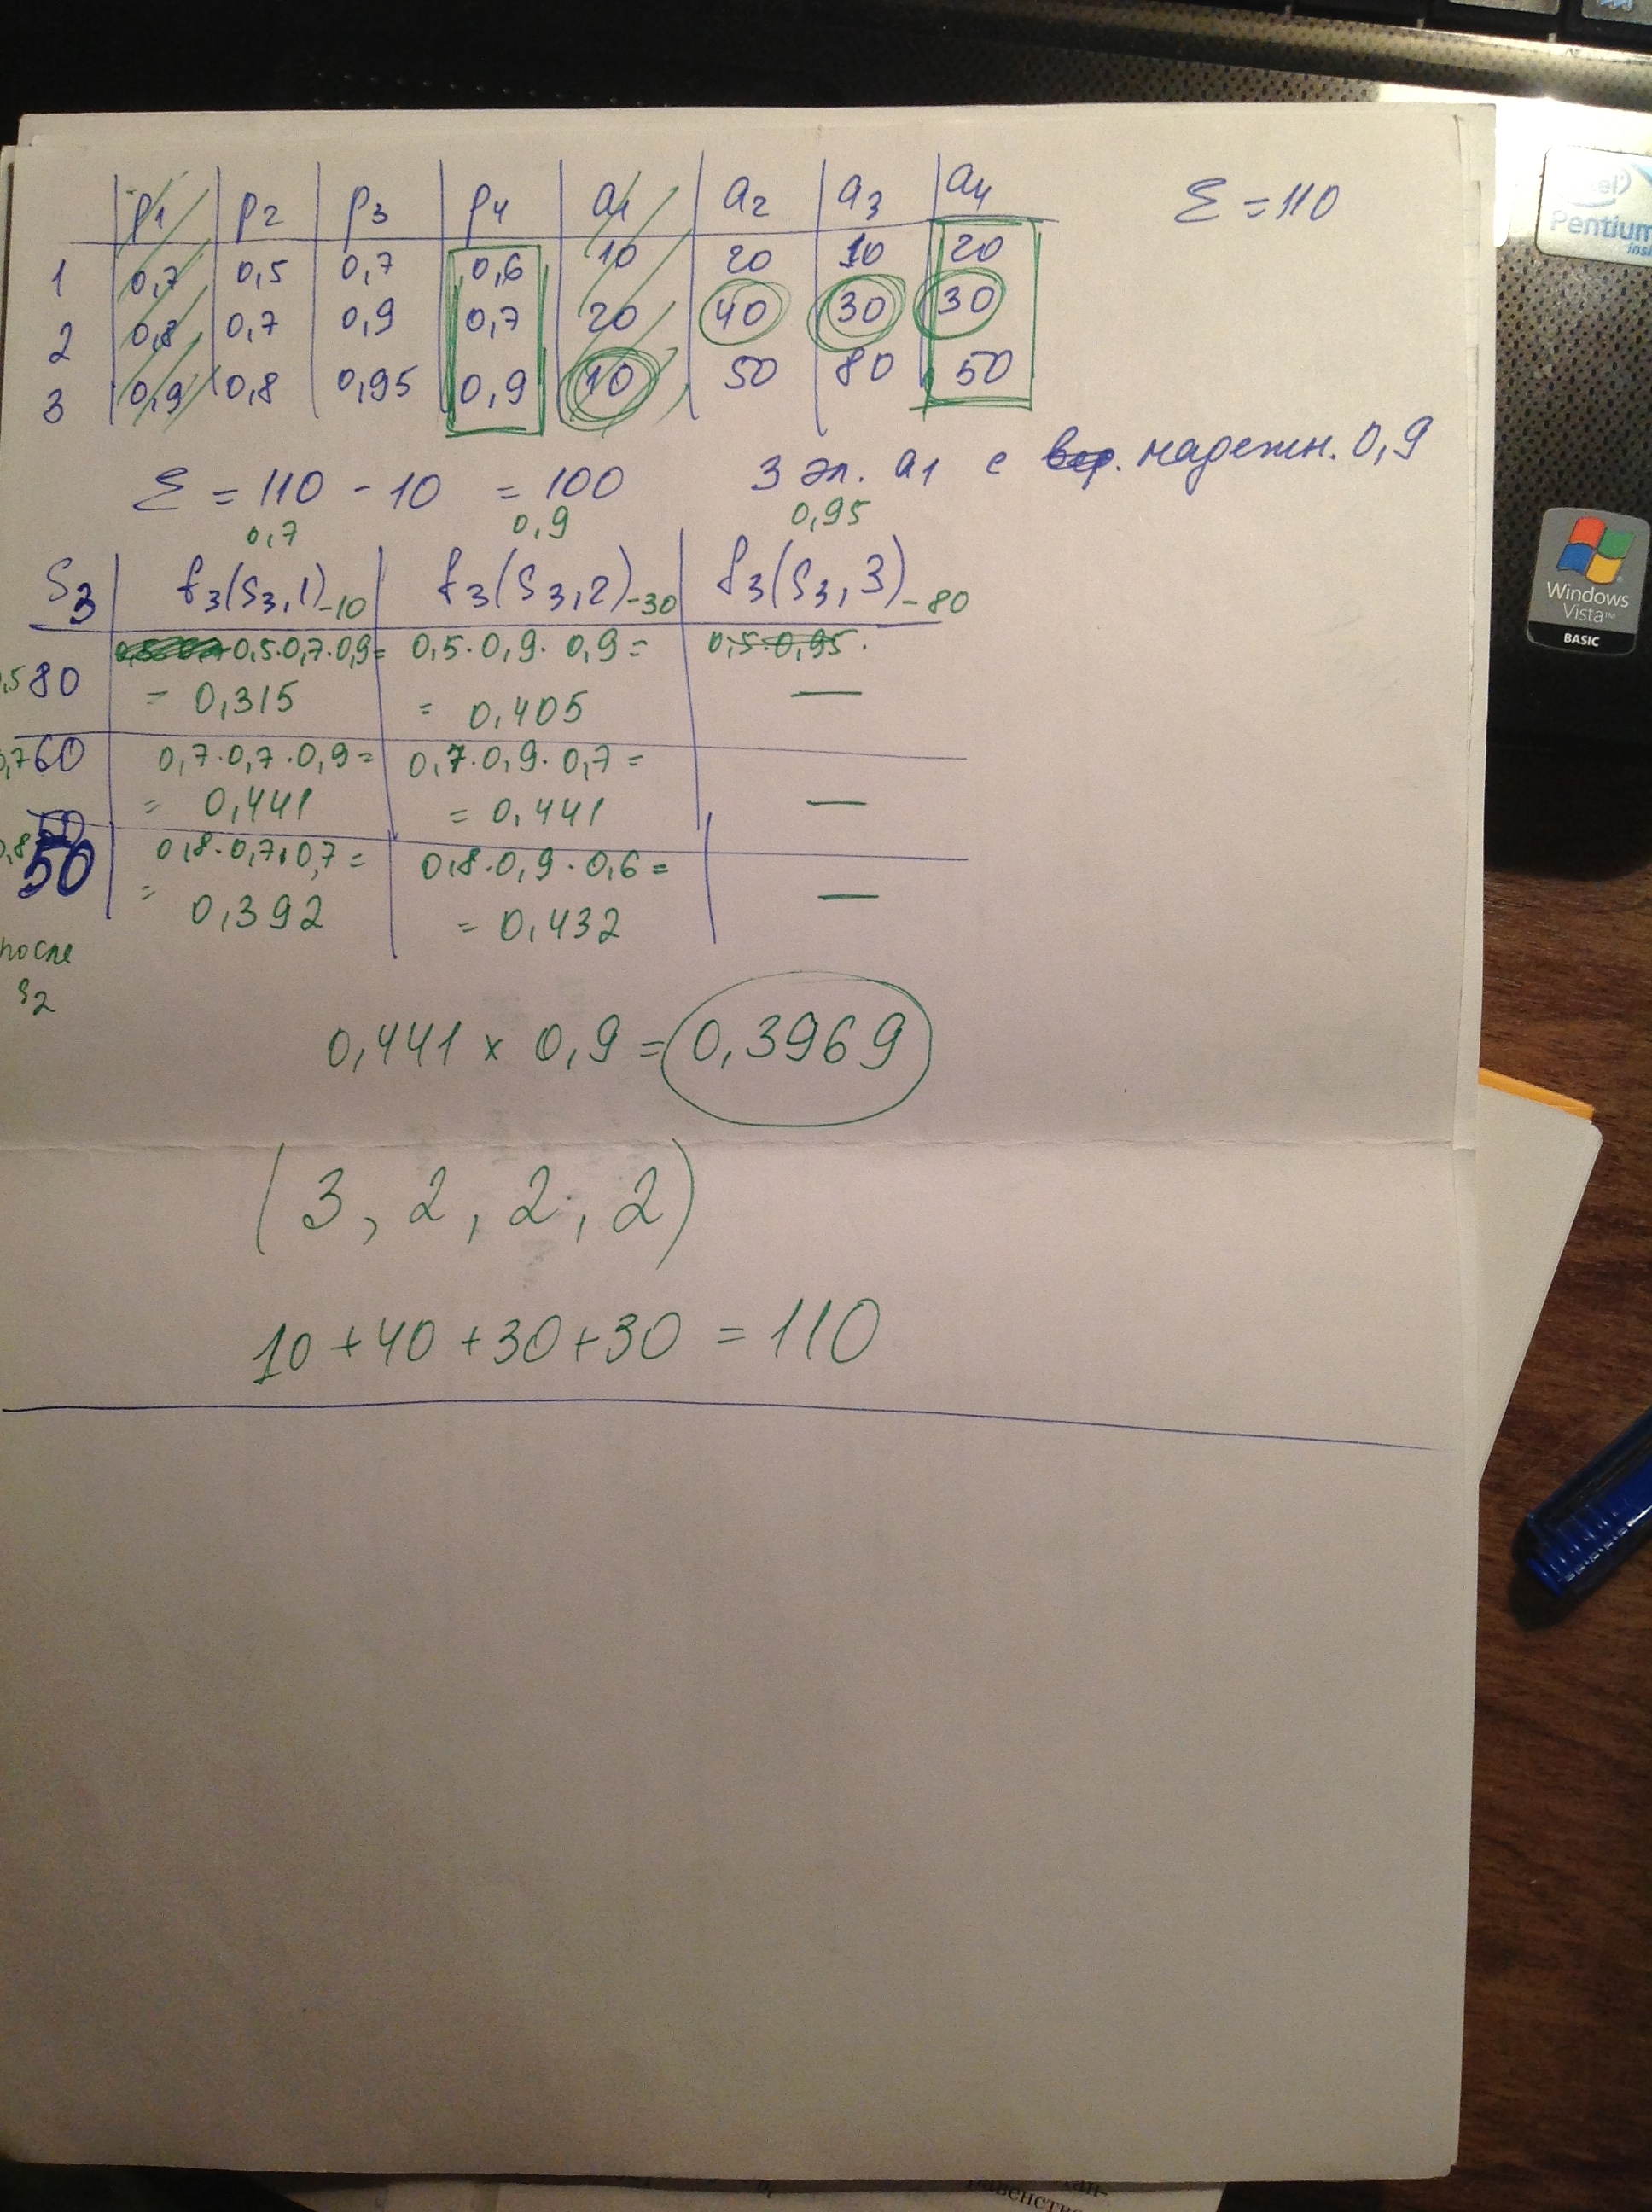 p1 p2 p3 p4 a1 a2 a3 a4 Σ = 110
1 0,7 0,5 0,7 0,6 10 20 10 20
2 0,8 0,7 0,9 0,7 20 40 30 30
3 0,9 0,8 0,95 0,9 10 50 80 50
Σ = 110 - 10 = 100 3 эл. a1 с вер. надежн. 0,9
0,7 0,9 0,95
S3 f3(S3,1)-10 f3(S3,2)-30 f3(S3,3)-80
0,5·0,7·0,9= 0,5·0,9·0,9= 0,5·0,95·
,5 80 = 0,315 = 0,405 —
0,7 60 0,7·0,7·0,9= 0,7·0,9·0,7=
= 0,441 = 0,441 —
0,8 50 0,8·0,7·0,7= 0,8·0,9·0,6=
= 0,392 = 0,432 —
после
s2
0,441 x 0,9 = 0,3969
(3, 2, 2, 2)
10+40+30+30 = 110
intel
Pentium
inside
Windows
Vista™
BASIC